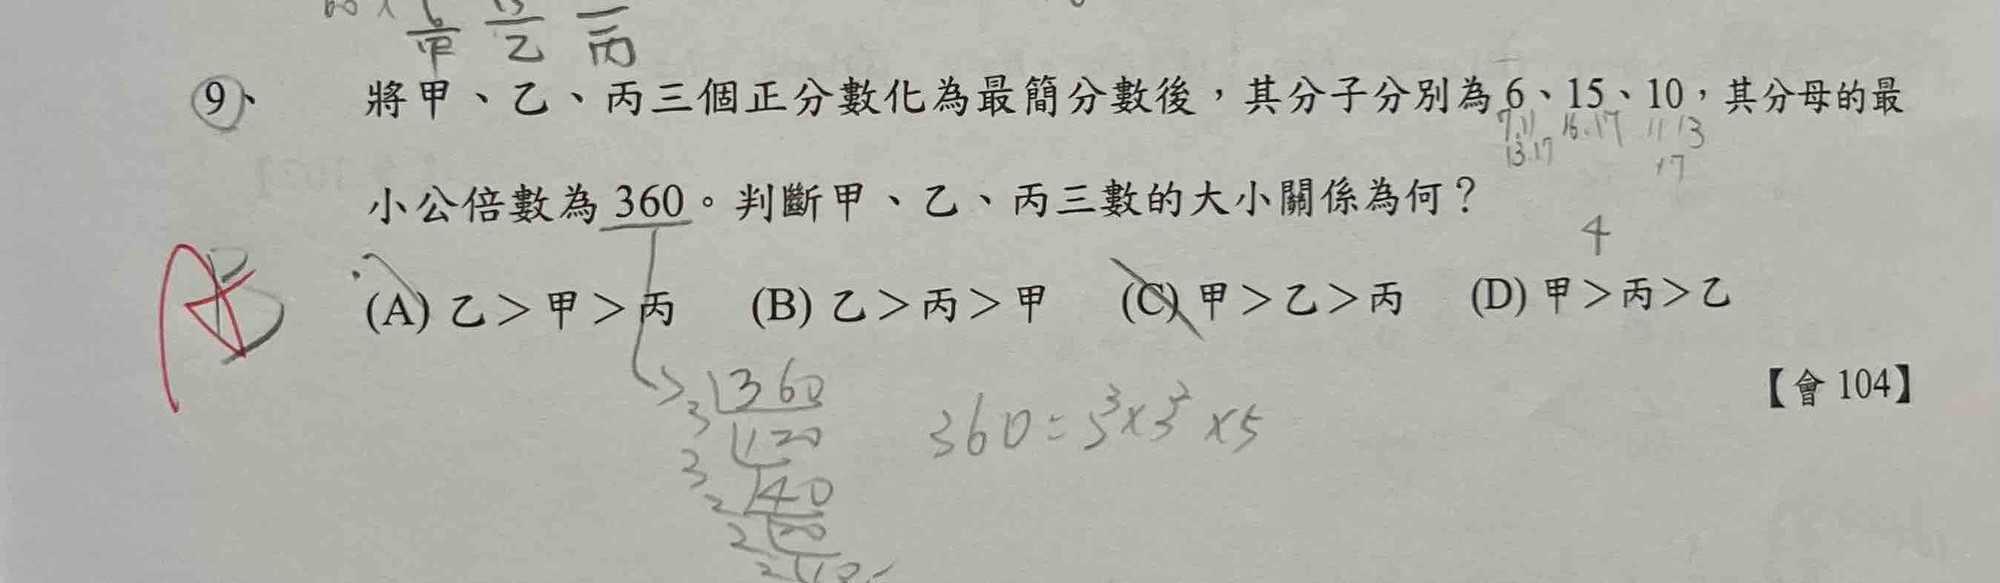 6 15
甲 乙 丙
9、 將甲、乙、丙三個正分數化為最簡分數後，其分子分別為6、15、10，其分母的最
7.11 16.17 11 13
13.17 17
小公倍數為360。判斷甲、乙、丙三數的大小關係為何？
4
B
(A) 乙＞甲＞丙 (B) 乙＞丙＞甲 (C) 甲＞乙＞丙 (D) 甲＞丙＞乙
【會104】
3 360
3 120
2 40
2 20
2 10